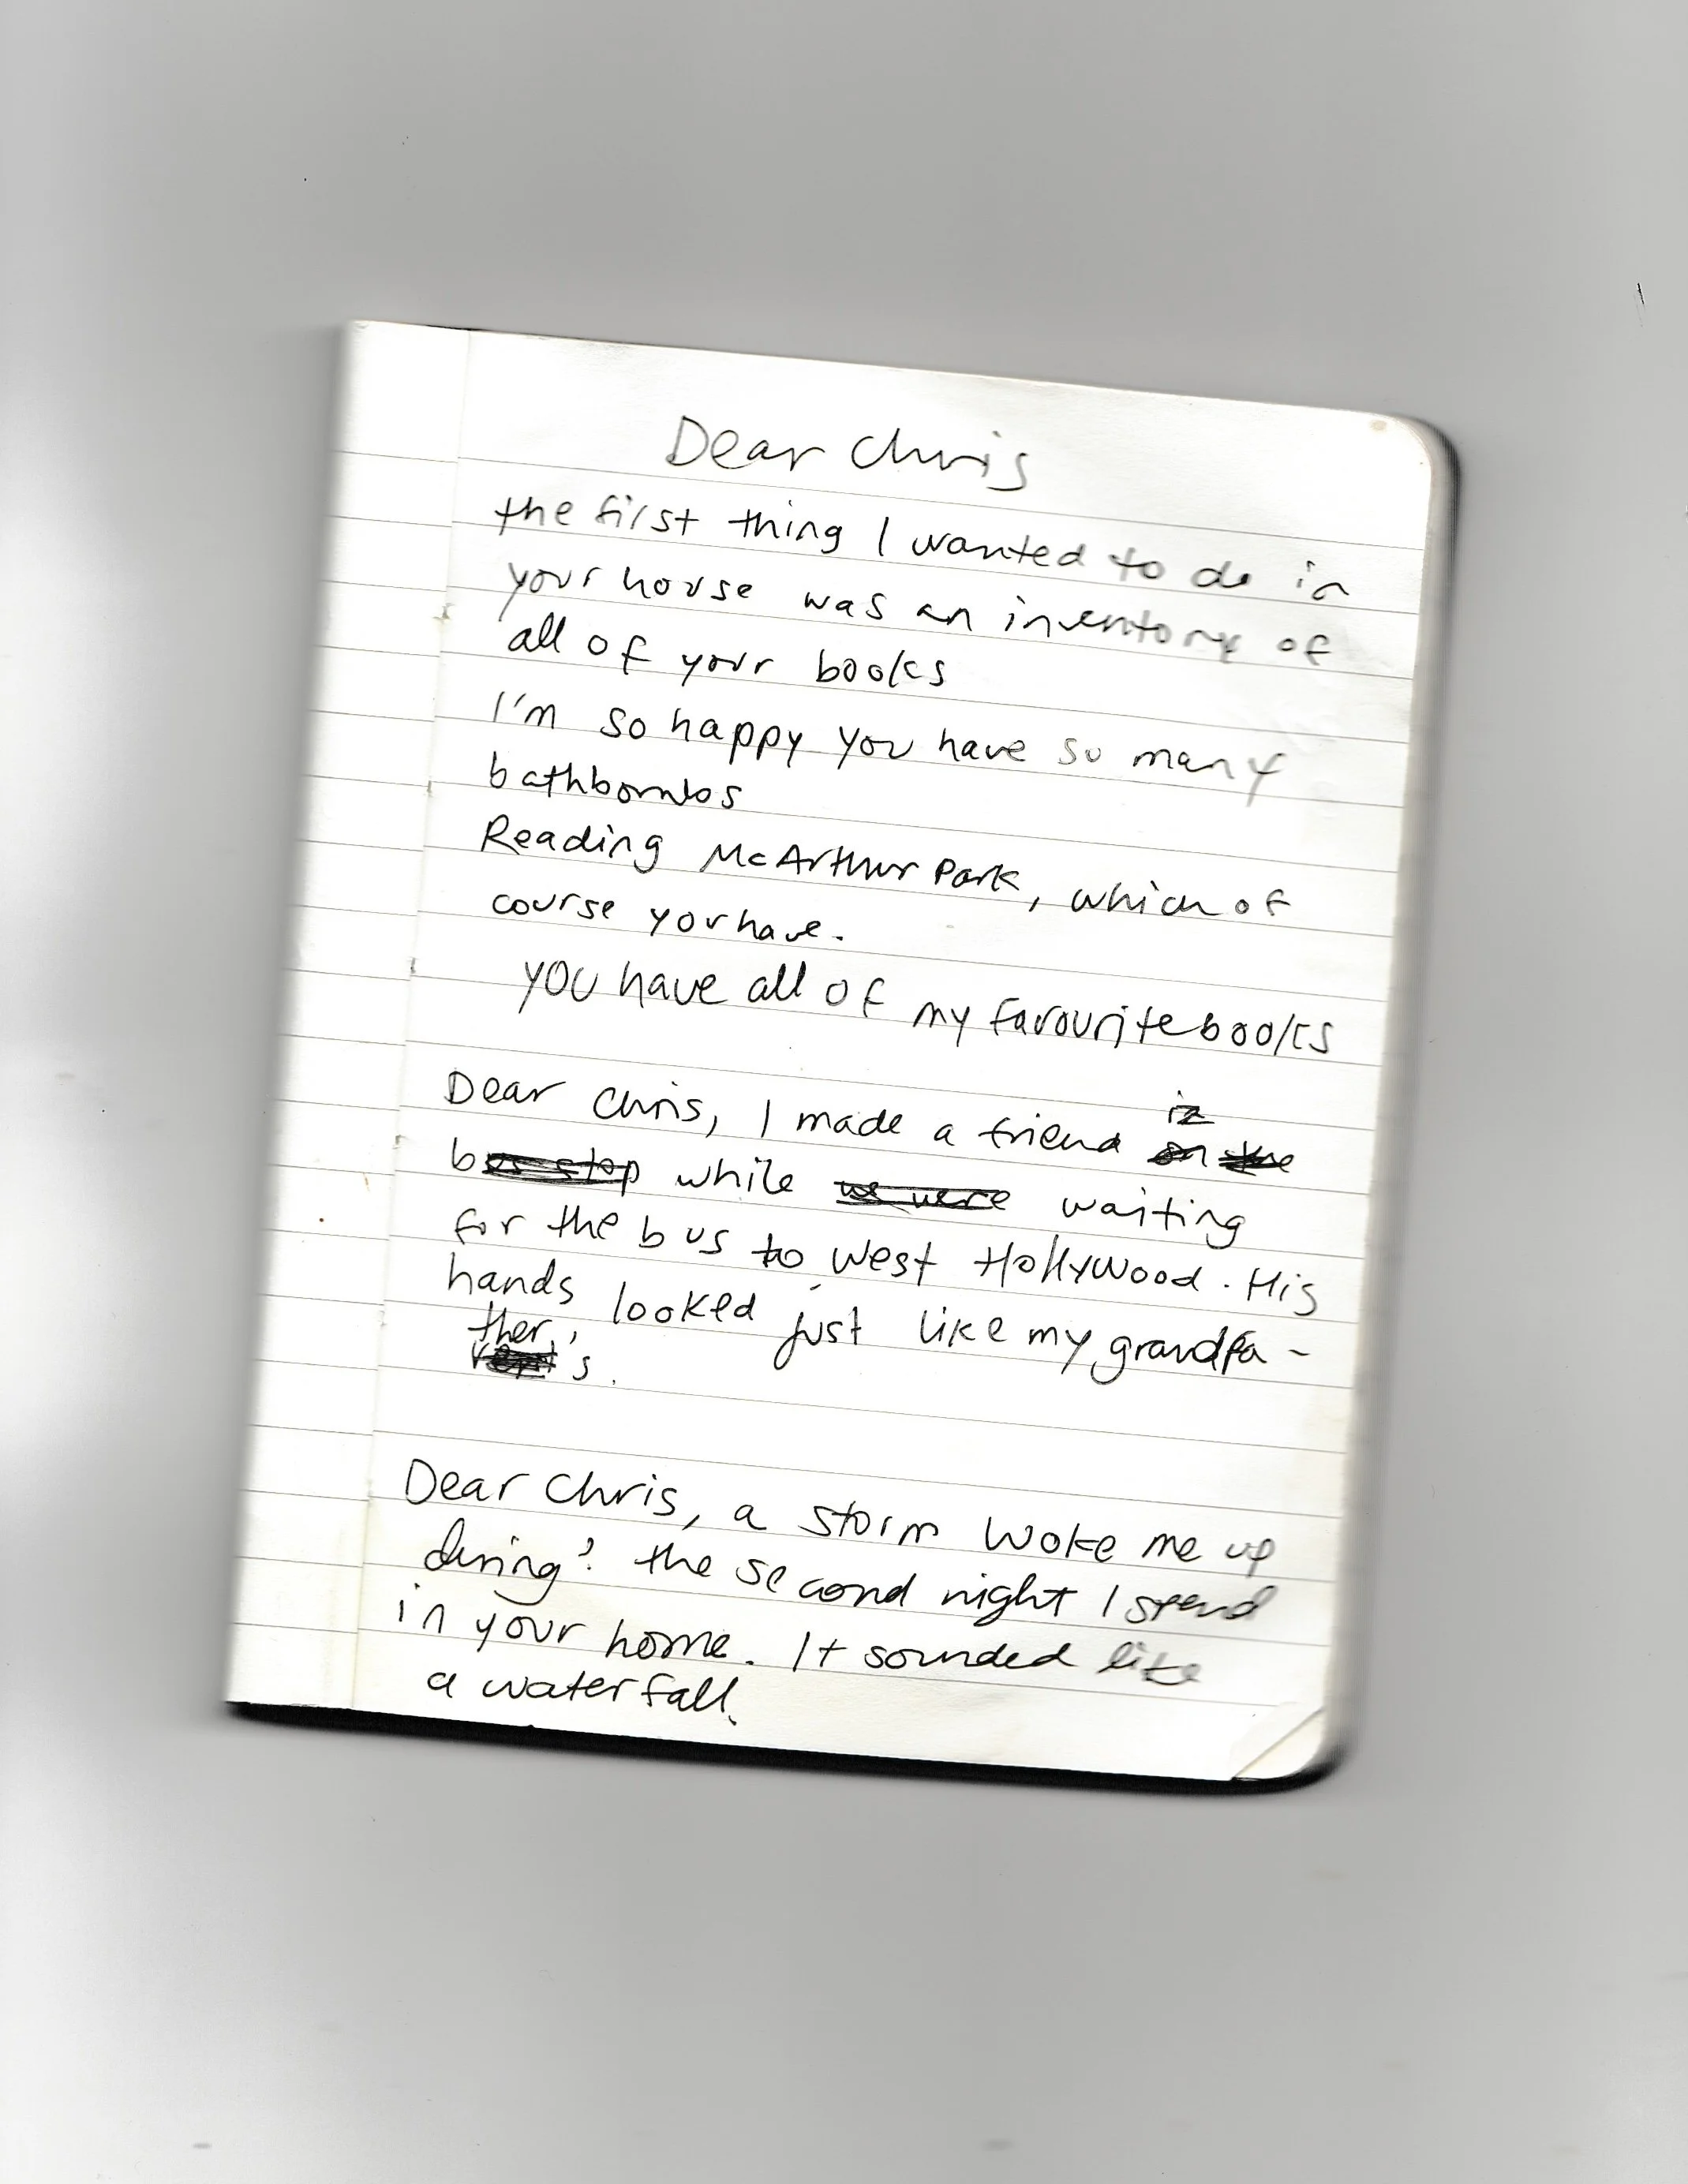 Dear Chris
the first thing I wanted to do in
your house was an inventory of
all of your books
I'm so happy you have so many
bathbombs
Reading McArthur Park, which of
course you have.
YOU have all of my favourite books
Dear Chris, I made a friend
in
on the
bus stop while we were waiting
for the bus to West Hollywood. His
hands looked just like my grandfa-
ther
rent's.
Dear Chris, a storm woke me up
during? the second night I spend
in your home. It sounded like
a waterfall.